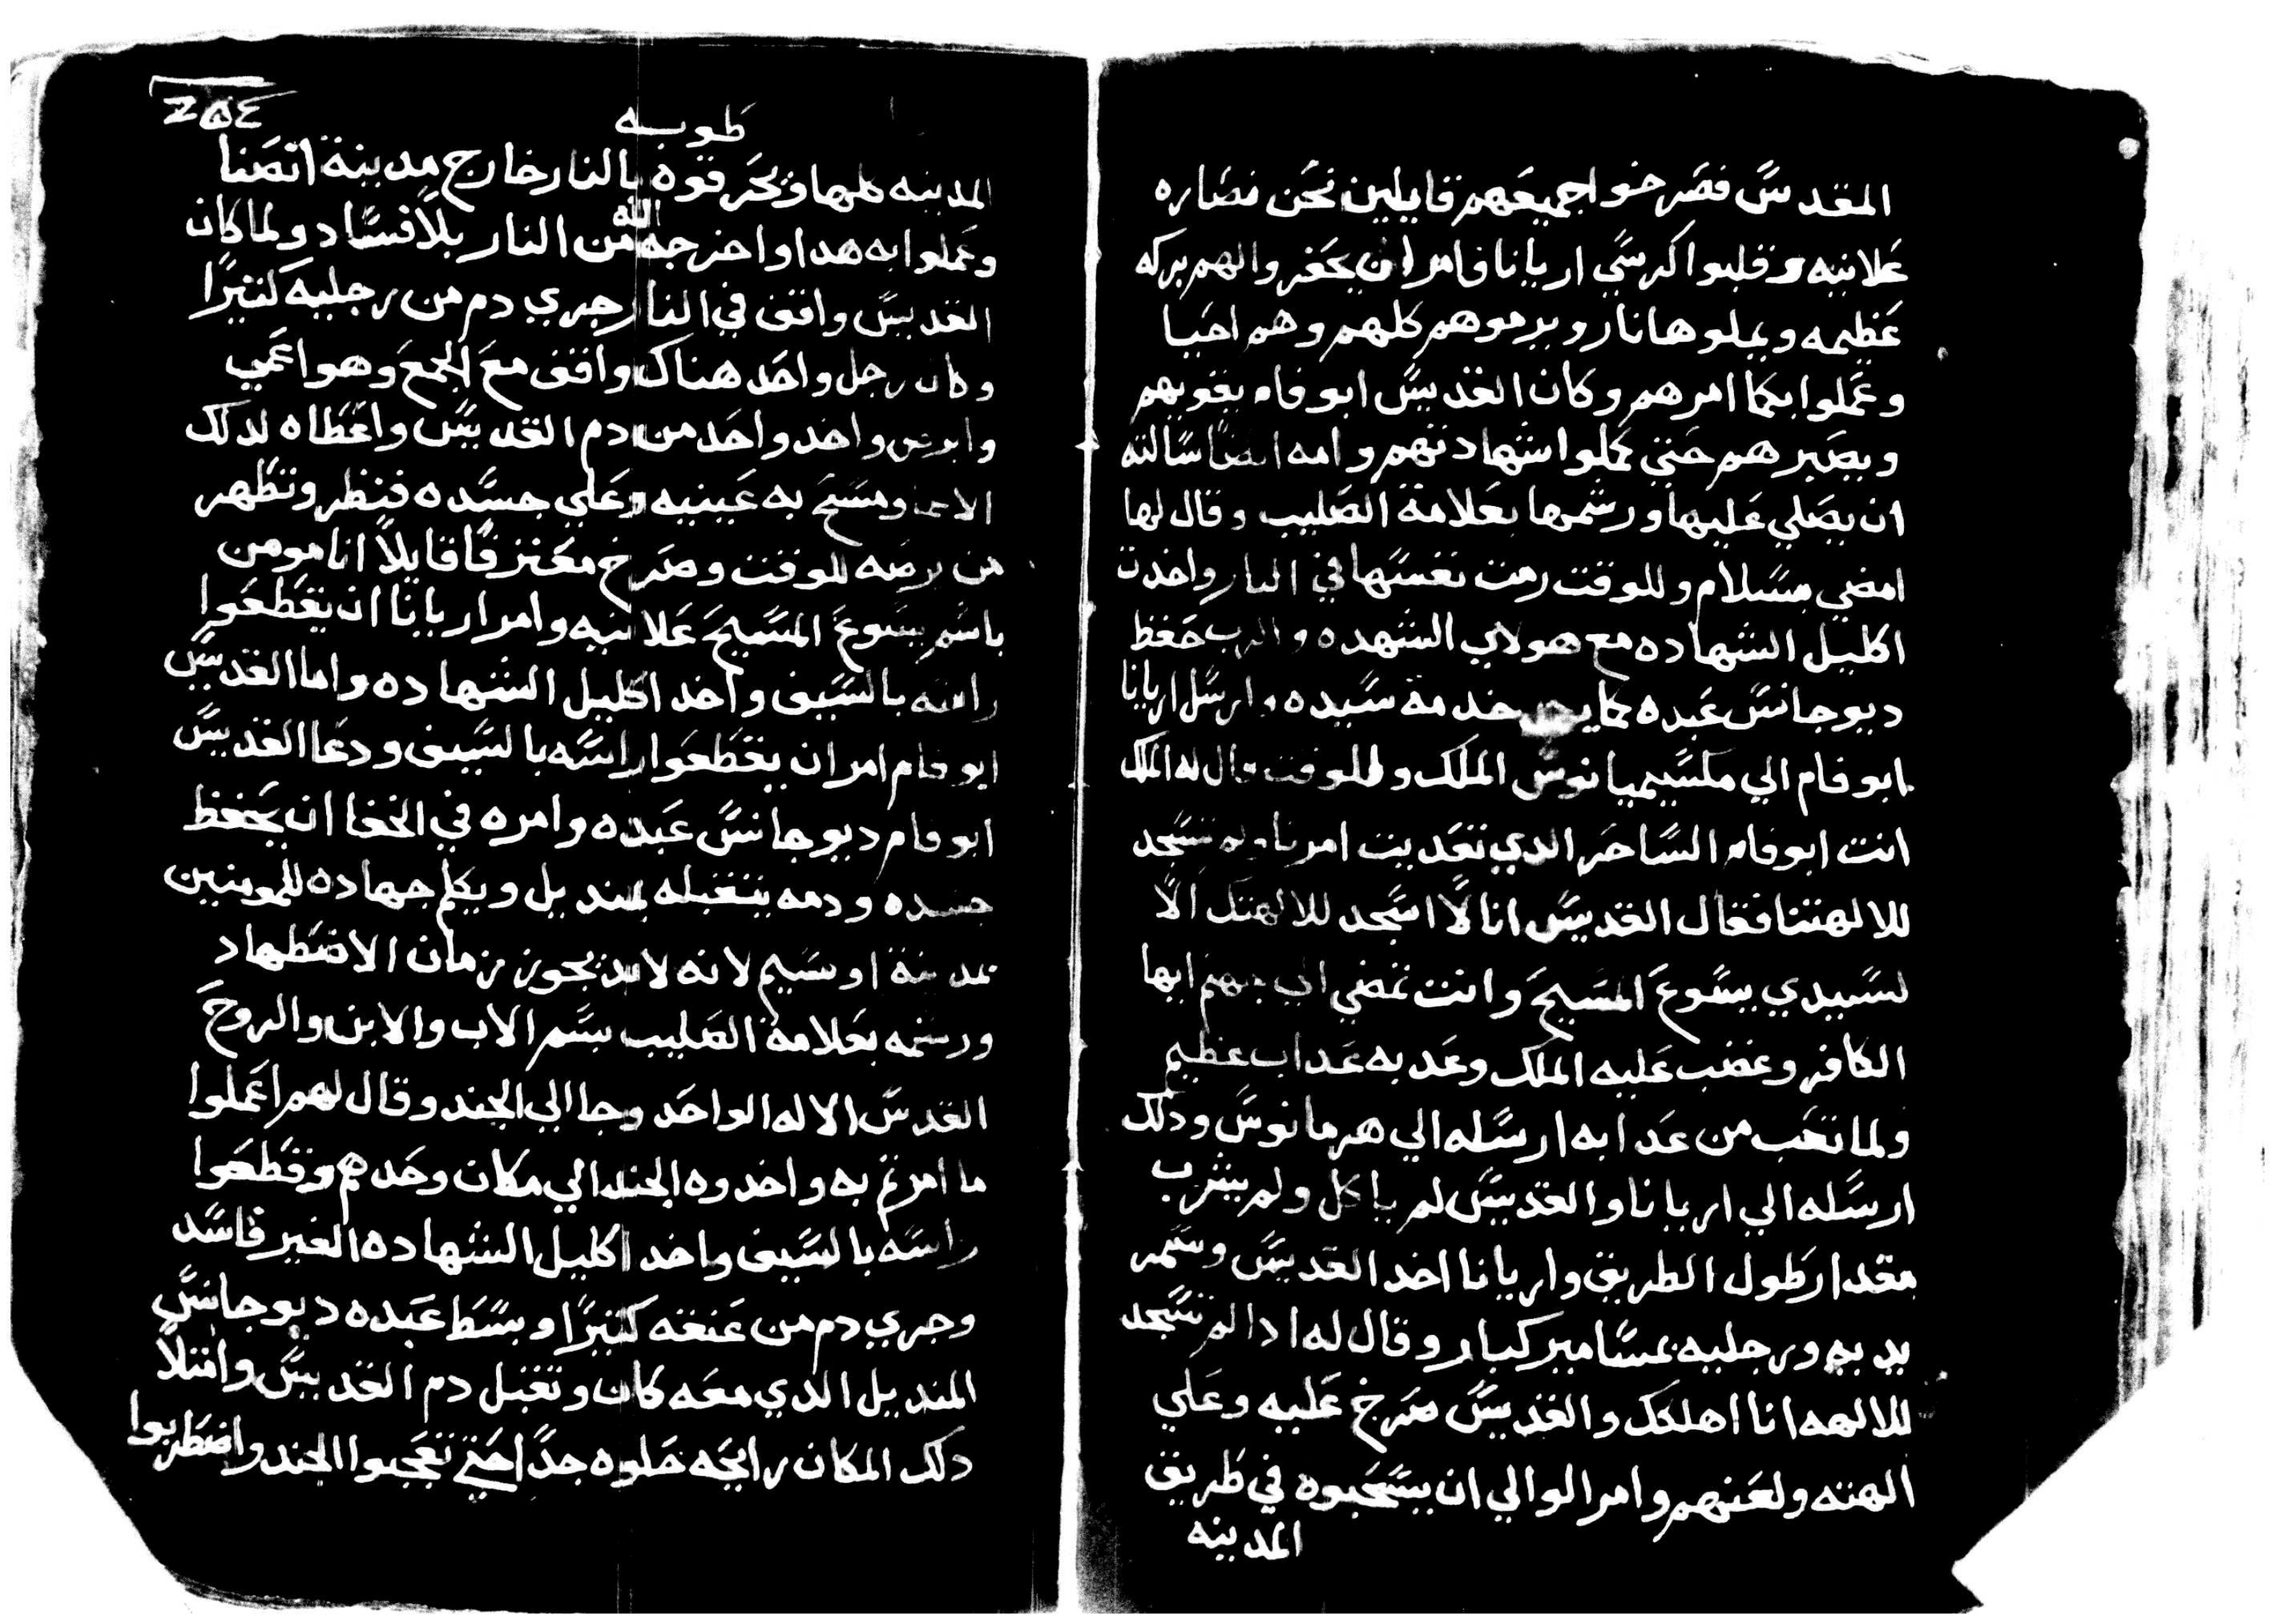 المقدس فصرخوا جميعهم قايلين نحن نصاره
علانيه وقلبوا كرسي اريانا فامر ان يحفروا لهم بركه
عظيمه ويملوها نار ويرموهم كلهم وهم احيا
وعملوا بكما امرهم وكان القديس ابوفام يقويهم
ويصبرهم حتي كملوا شهادتهم وامه ايضا سالته
ان يصلي عليها ورشمها بعلامة الصليب وقال لها
امضي بسلام وللوقت رمت نفسها في النار واخدت
اكليل الشهاده مع هولاي الشهده والرب حفظ
ديوجانس عبده خدمة سيده وارسل اريانا
ابوفام الي مكسيميانوس الملك وللوقت قال له الملك
انت ابوفام الساحر الدي تعديت امرنا ولم تسجد
للالهتنا فقال القديس انا لا اسجد للالهتك الا
لسيدي يسوع المسيح وانت تمضي الي جهنم ايها
الكافر وغضب عليه الملك وعدبه عداب عظيم
ولما تعب من عدابه ارسله الي هرمانوس ودلك
ارسله الي اريانا والقديس لم ياكل ولم يشرب
مقدار طول الطريق واريانا اخد القديس وسمر
يديه ورجليه بمسامير كبار وقال له ادا لم تسجد
للالهه انا اهلكك والقديس صرخ عليه وعلي
الهته ولعنهم وامر الوالي ان يسحبوه في طريق
المدينه
٢٥٤
طوبه
المدينه كلها وتحرقوه بالنار خارج مدينة انصنا
وعملوا به هدا واخرجه الله من النار بلا فساد ولما كان
القديس واقف في النار جري دم من رجليه كثيرا
وكان رجل واحد هناك واقف مع الجمع وهو اعمي
وابرص واخد واحد من دم القديس واعطاه لدلك
الاعما ومسح به عينيه وعلي جسده فنظر وتطهر
من برصه للوقت وصرخ معترفا قايلا انا مومن
باسم يسوع المسيح علانيه وامر اريانا ان يقطعوا
راسه بالسيف واخد اكليل الشهاده واما القديس
ابوفام امر ان يقطعوا راسه بالسيف ودعا القديس
ابوفام ديوجانس عبده وامره في الخفا ان يحفظ
جسده ودمه يتقبله بمنديل ويكلم جهاده للمومنين
بمدينة اوسيم لانه لابد يجوز زمان الاضطهاد
ورشمه بعلامة الصليب بسم الاب والابن والروح
القدس الاله الواحد وجا الي الجند وقال لهم اعملوا
ما امرتم به واخدوه الجند الي مكان وحدهم وقطعوا
راسه بالسيف واخد اكليل الشهاده الغير فاسد
وجري دم من عنقه كثيرا وبسط عبده ديوجانس
المنديل الدي معه كان وتقبل دم القديس وامتلا
دلك المكان رايحه حلوه جدا حتي تعجبوا الجند واضطربوا